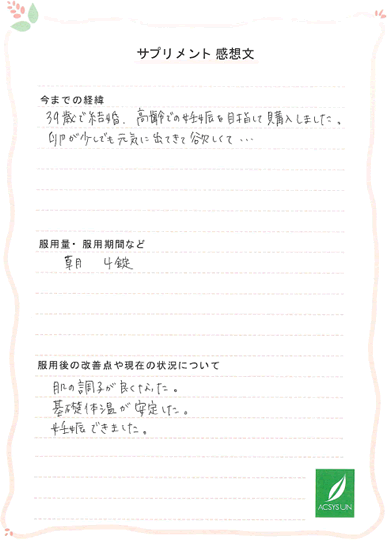 サプリメント 感想文
今までの経緯
39歳で結婚、高齢での妊娠を目指して購入しました。
卵が少しでも元気に出てきて欲しくて…
服用量・服用期間など
朝 4錠
服用後の改善点や現在の状況について
肌の調子が良くなった。
基礎体温が安定した。
妊娠できました。
ACSYSUN